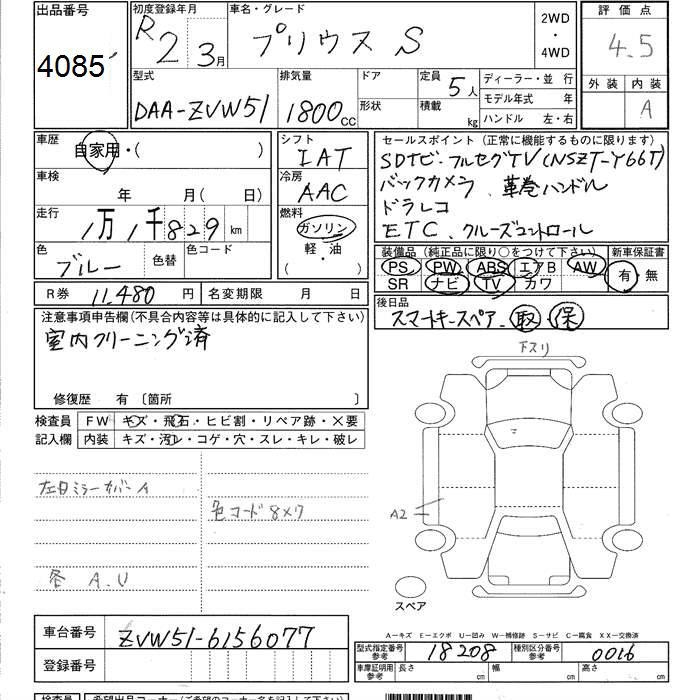 出品番号 初度登録年月 車名・グレード 2WD ・ 4WD 評価点
4085 R2 3月 プリウス S 4.5
型式 排気量 ドア 定員 5人 ディーラー・並 行 外装 内装
DAA-ZVW51 1800cc 形状 積載 kg モデル年式 年 A
ハンドル 左・右
車歴 自家用・( ) シフト IAT セールスポイント (正常に機能するものに限ります)
SDナビ・フルセグTV(NSZT-Y66T)
車検 年 月( 日) 冷房 AAC バックカメラ、革巻ハンドル
ドラレコ
走行 1万1千829km 燃料 ガソリン 軽・油 ( ) ETC、クルーズコントロール
色 ブルー 色替 色コード 装備品 (純正品に限り○をつけて下さい) 新車保証書
PS PW ABS エアB AW 有・無
SR ナビ TV カワ
R券 11,480円 名変期限 月 日 後日品
スマートキースペア、取・保
注意事項申告欄(不具合内容等は具体的に記入して下さい)
室内クリーニング済
下スリ
修復歴 有 〔箇所 〕
検査員 FW キズ・飛石・ヒビ割・リペア跡・X要
記入欄 内装 キズ・汚レ・コゲ・穴・スレ・キレ・破レ
左ドミラーカバーA
色コード8X7
A2
各 A.U
スペア
A−キズ E−エクボ U−凹み W−補修跡 S−サビ C−腐食 XX−交換済
車台番号 ZVW51-6156077
型式指定番号 参考 18208 種別区分番号 参考 0016
登録番号 車庫証明用 参考 長さ cm 幅 cm 高さ cm